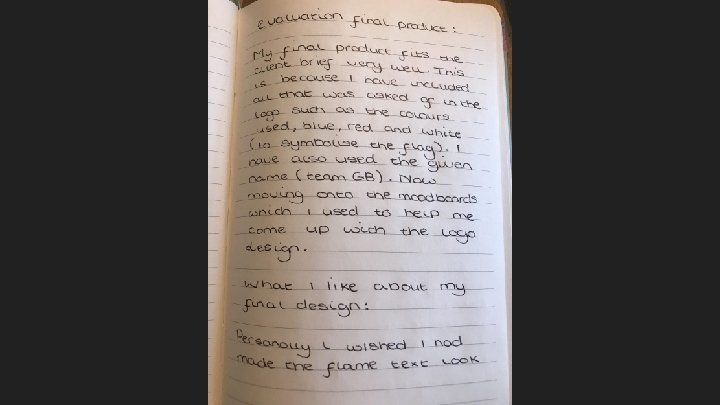 evaluation final product:
My final product fits the
client brief very well. This
is because I have included
all that was asked of in the
logo such as the colours
used, blue, red and white
(to symbolise the flag). I
have also used the given
name (team GB). Now
moving onto the moodboards
which I used to help me
come up with the logo
design.
What I like about my
final design:
Personally I wished I had
made the flame text look